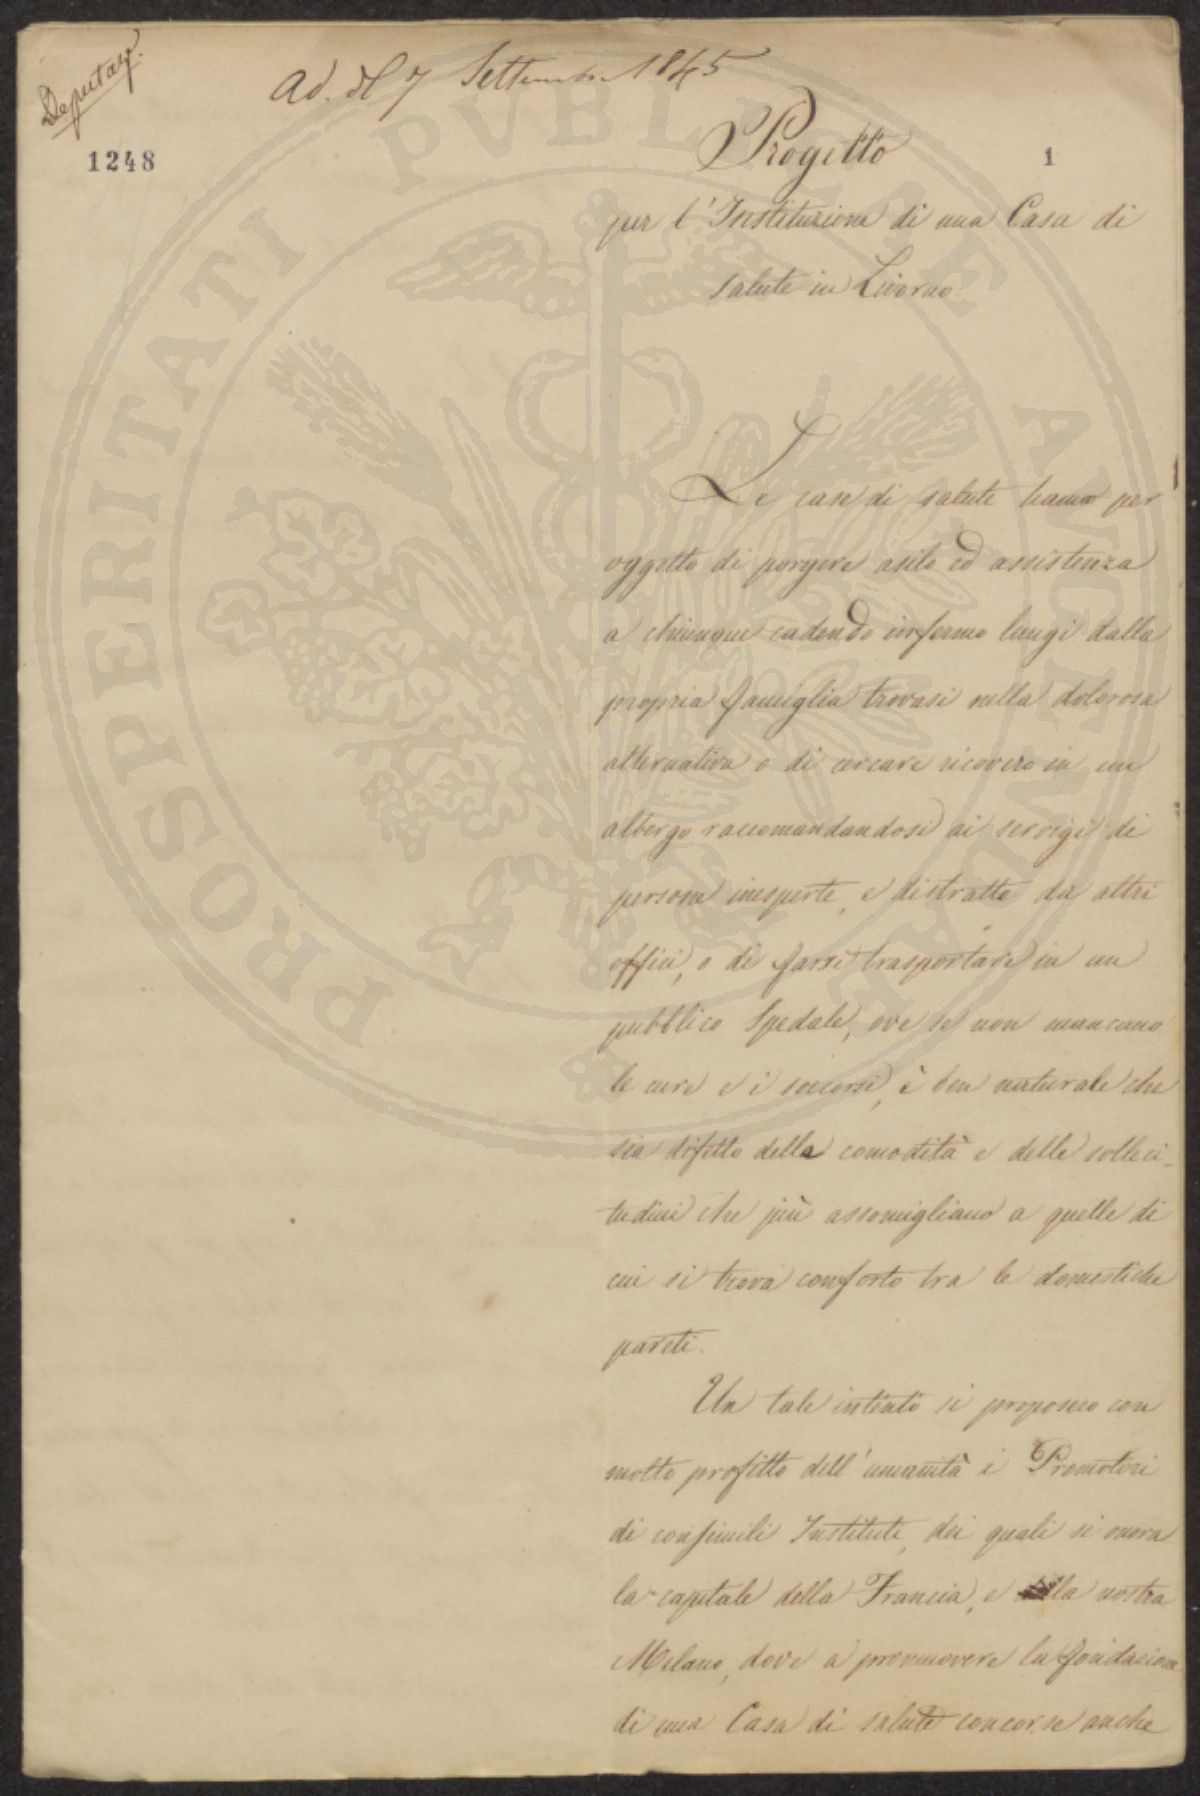 Deputaz.
Ad. dl 7 Settembre 1845
1248
1
Progetto
per l'Instituzione di una Casa di
salute in Livorno.
Le case di salute hanno per
oggetto di porgere asilo ed assistenza
a chiunque cadendo infermo lungi dalla
propria famiglia trovasi nella dolorosa
alternativa o di cercare ricovero in un
albergo raccomandandosi ai servigi di
persone inesperte, e distratte da altri
offici, o di farsi trasportare in un
pubblico Spedale, ove se non mancano
le cure e i soccorsi, è ben naturale che
sia difetto della comodità e delle solleci-
tudini che più assomigliano a quelle di
cui si trova conforto tra le domestiche
pareti.
Un tale intento si proposero con
molto profitto dell'umanità i Promotori
di consimili Institute, dei quali si onora
la capitale della Francia, e la nostra
Milano, dove a promuovere la fondazione
di una Casa di salute concorse anche
PROSPERITATI PVBLICAE AVGENDAE